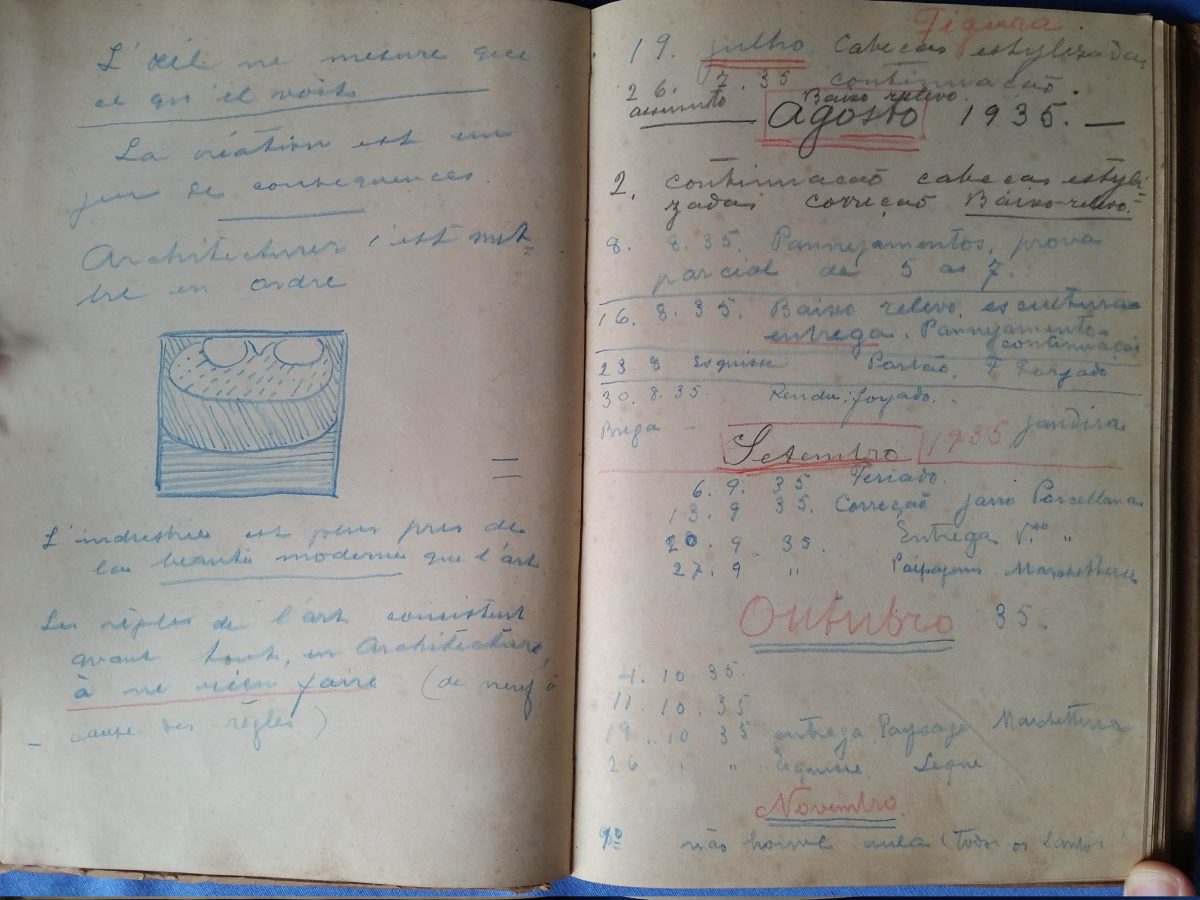 L'œil ne mesure que
ce qu'il voit
La création est un
jeu de conséquences.
Architecturer c'est met-
tre en ordre
L'industrie est plus près de
la beauté moderne que l'art.
Les règles de l'art consistent
avant tout, en Architecture,
à ne rien faire (de neuf à
cause des règles)
Figura.
19. julho. Cabeças estylizadas
26. 7. 35 continuacão.
assumpto Baixo relevo.
Agosto 1935.
2. continuacão cabecas estyli-
zadas correção Baixo-relevo.
8. 8. 35. Pannejamentos, prova
parcial de 5 as 7.
16. 8. 35. Baixo relevo, escultura
entrega. Pannejamento
continuacão
23. 8 Esquisse Portão, F. Forjado
30. 8. 35. Rendu: forjado.
jandira
Setembro 1935
6. 9. 35 Feriado.
13. 9 35. Correção jarro Porcellana
20. 9. 35. Entrega "
27. 9 " Paisagem Marchetteria
Outubro 35.
4. 10. 35.
11. 10. 35
19. 10 35 entrega Paysage Marchetteria
26 " " Esquisse Leque.
Novembro
1º não houve aula (Todos os Santos)